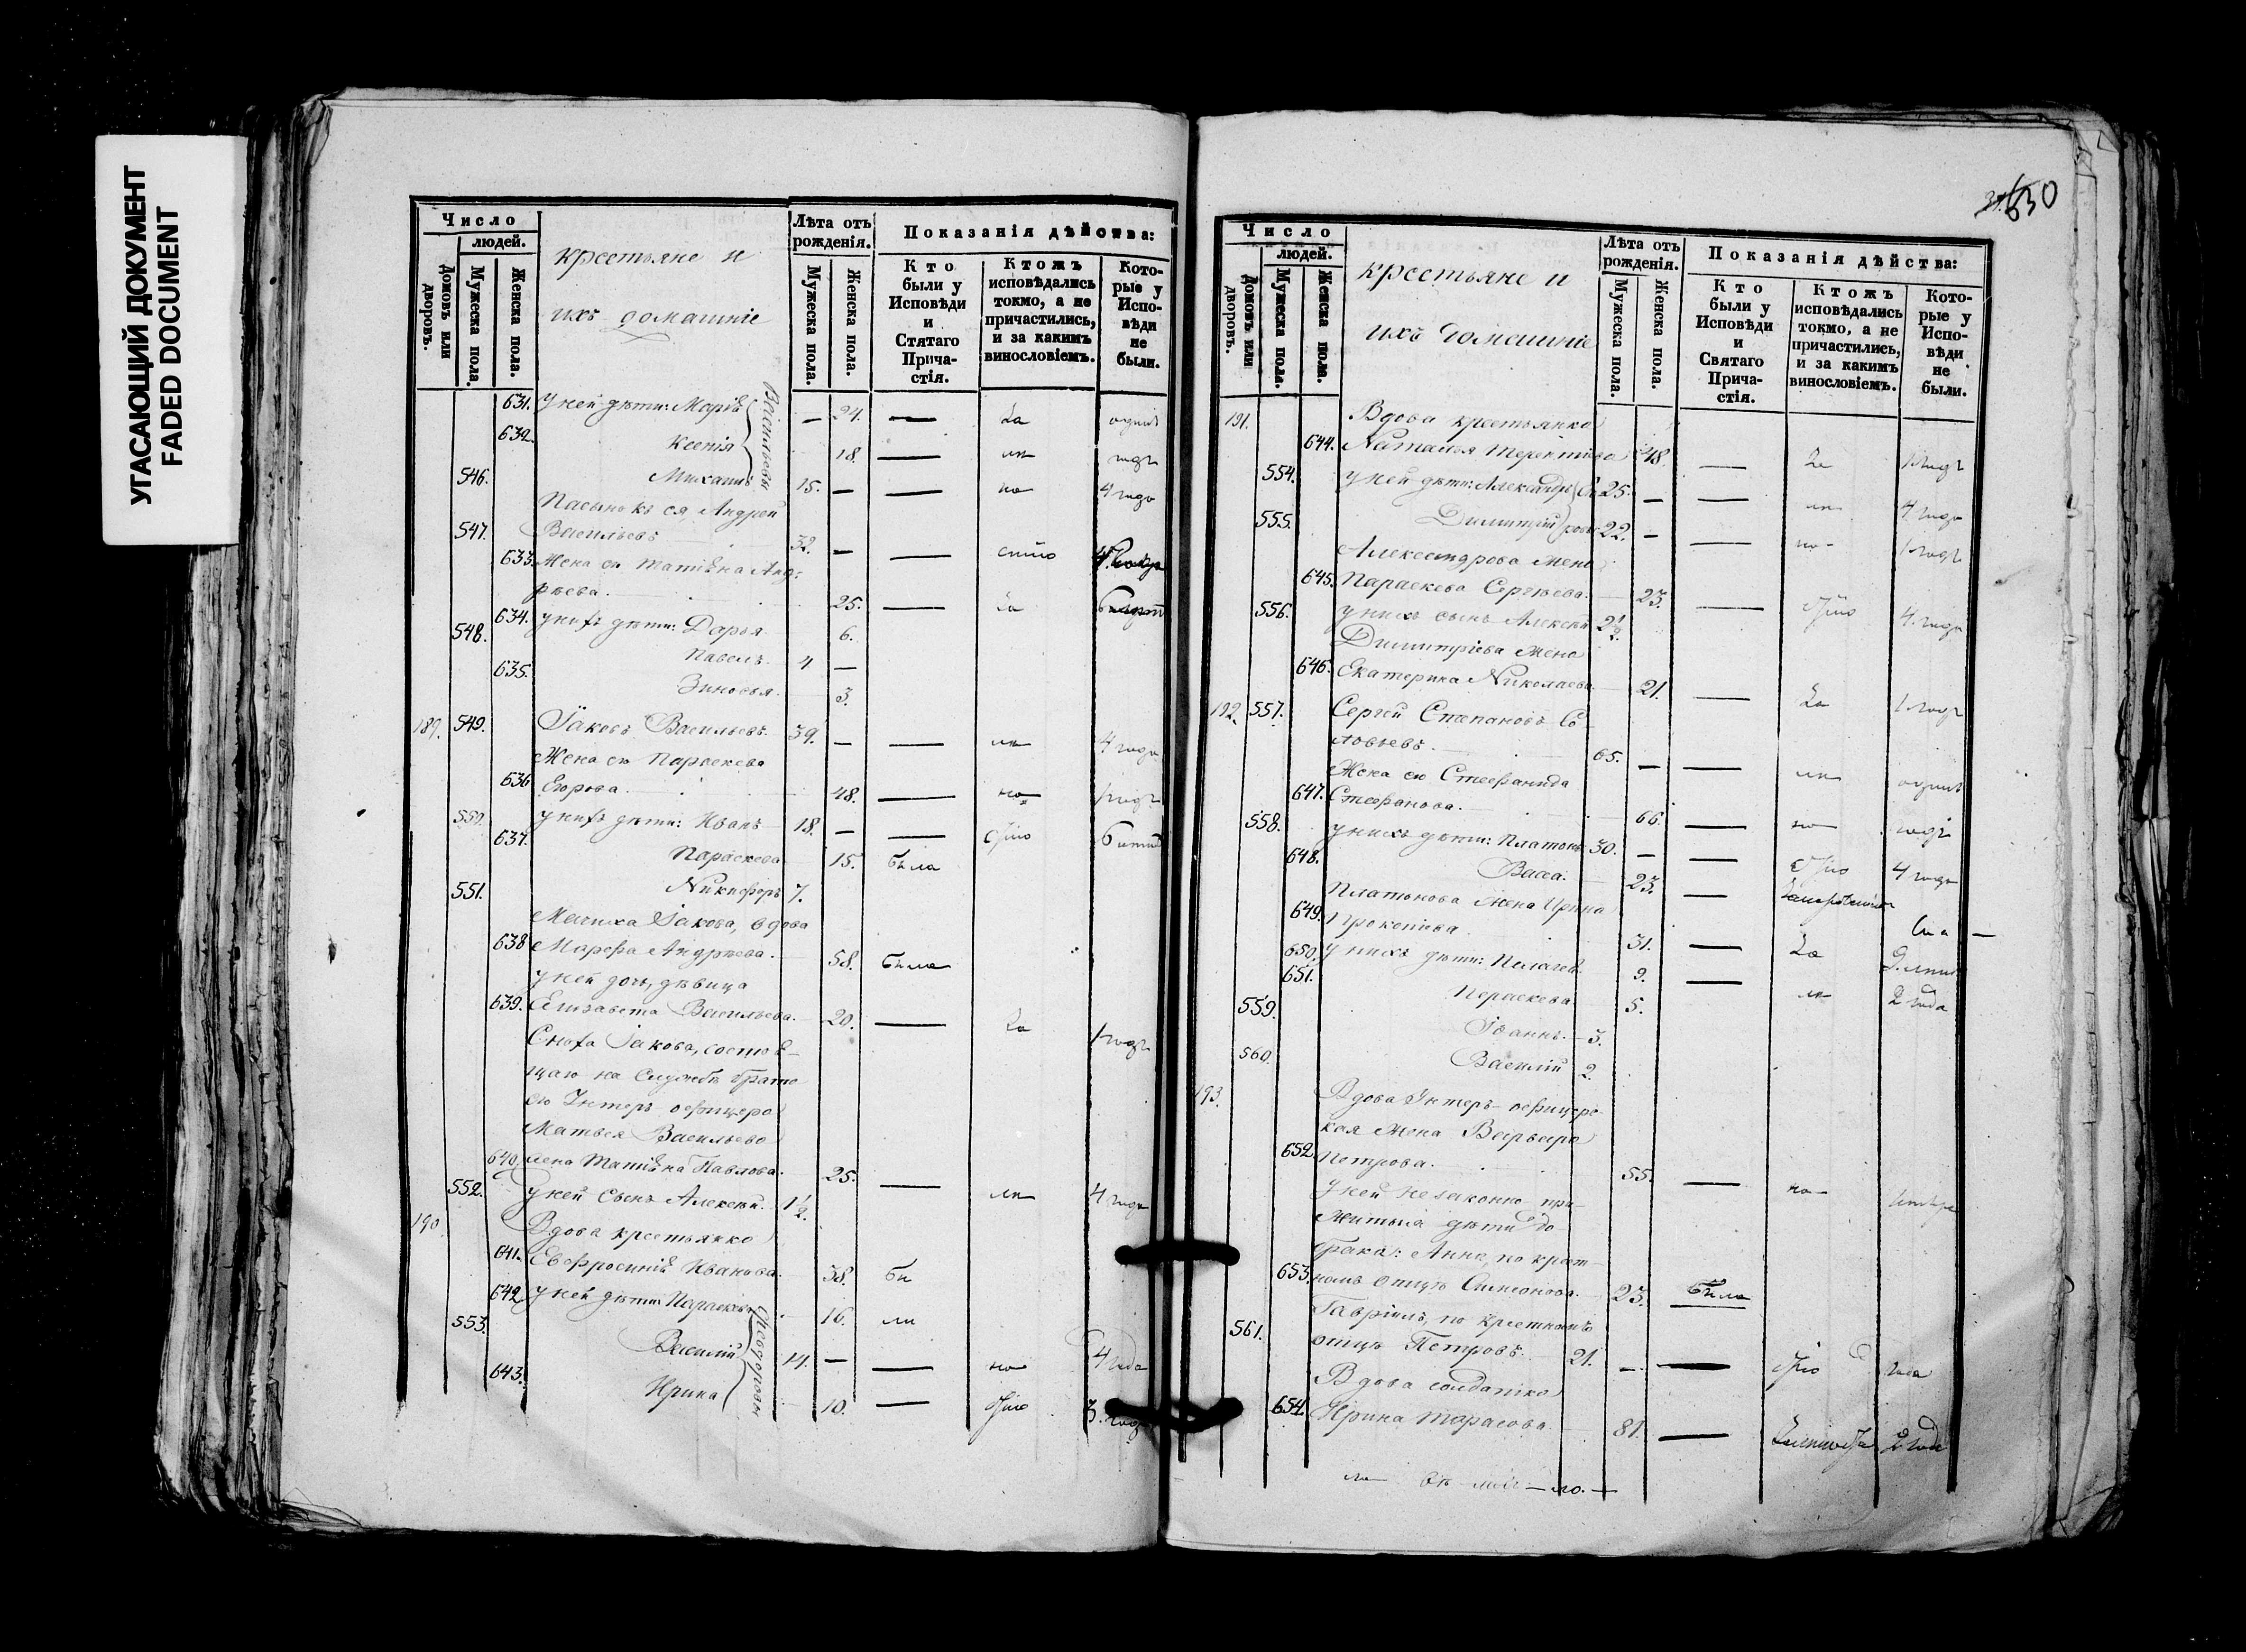 УГАСАЮЩИЙ ДОКУМЕНТ
FADED DOCUMENT
Число
людей.
Домовъ или дворовъ.
Мужеска пола.
Женска пола.
крестьяне и
ихъ домашніе
Лѣта отъ рожденія.
Мужеска пола.
Женска пола.
Показанія дѣйства:
Кто были у Исповѣди и Стятаго Прича-стія.
Ктожъ исповѣдались токмо, а не причастились, и за какимъ винословіемъ.
Кото-рые у Испо-вѣди не были.
631. У ней дѣти: Марія Васильевы — 24. — За
632. Ксенія 18. —
546. Михаилъ 15. — — 4 года
Пасынокъ ея Андрей
547. Васильевъ 32. — —
633. Жена его Татіяна Анд-
рѣева. 25. — За
634. У нихъ дѣти: Дарья 6.
548. Павелъ. 4 —
635. Зиновья. 3.
189. 549. Іаковъ Васильевъ. 39. — — 4 года
Жена его Параскева
636 Егорова. 48. — 1 годъ
550. У нихъ дѣти: Иванъ 18. — —
637. Параскева 15. была
551. Никифоръ 7.
Мачиха Іакова, вдова
638 Марфа Андрѣева. 58. была
У ней дочь, дѣвица
639. Елизавета Васильева. 20. — За 1 годъ
Сноха Іакова, состоя-
щаго на службѣ брата
его Унтеръ-офицера
Матвея Васильева
640. жена Татіяна Павлова. 25. —
552. У ней сынъ Алексѣй. 1 1/2. 4 года
190. Вдова крестьянка
641. Евфросинія Иванова. 38. бы
642. У ней дѣти: Параскева Ѳеодоровы 16. ли
553. Василій 14. — — 4 года
643. Ирина 10. — 3. года
630
Число
людей.
Домовъ или дворовъ.
Мужеска пола.
Женска пола.
крестьяне и
ихъ домашніе
Лѣта отъ рожденія.
Мужеска пола.
Женска пола.
Показанія дѣйства:
Кто были у Исповѣди и Святаго Прича-стія.
Ктожъ исповѣдались токмо, а не причастились, и за какимъ винословіемъ.
Кото-рые у Испо-вѣди не были.
191. Вдова крестьянка
644. Наталья Терентіева 48. — За 1 годъ
554. У ней дѣти: Александръ 25. — — 4 года
555. Димитрій 22. — — 1 годъ
Александрова жена
645. Параскева Сергѣева. 23. — 4. года
556. У нихъ сынъ Алексѣй 2 1/2.
Димитрiева жена
646. Екатерина Николаева. 21. — За 1 годъ
192. 557. Сергѣй Степановъ Со-
ловьевъ. 65. — —
Жена его Стефанида
647. Стефанова. 66. — годъ
558. У нихъ дѣти: Платонъ 30. — — 4 года
648. Васса. 23. —
Платонова жена Ирина
649. Прокопіева 31. — За
650. У нихъ дѣти: Пелагея 9. — 2 года
651. Параскева 5.
559. Іоаннъ. 3.
560. Василій 2.
193. Вдова Унтеръ-офицерс-
кая жена Варвара
652. Петрова. 55. —
У ней незаконно при-
житыя дѣти до
брака: Анна, по крест-
653. номъ отцѣ Симеонова. 23. была
Гавріилъ, по крестномъ
561. отцѣ Петровъ. 21. — —
Вдова солдатка
654. Ирина Тарасова. 81. — 2 года